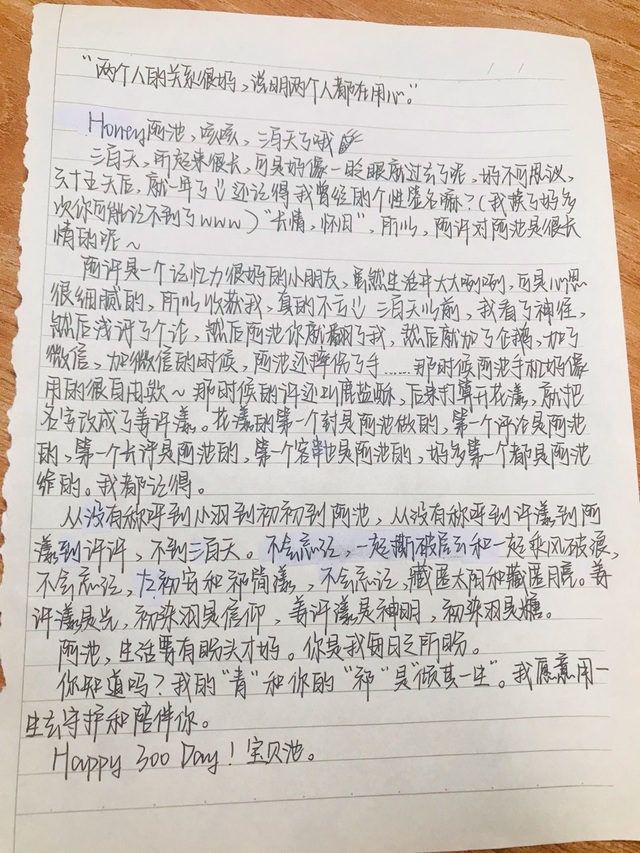 “两个人的关系很好，说明两个人都在用心。”
Honey阿池，咳咳，三百天了哦
三百天，听起来很长，可是好像一眨眼就过去了呢，好不可思议，
六十五天后，就一年了 还记得我曾经的个性签名嘛？（我换了好多
次你可能记不到了www）“长情，怀旧”，所以，阿许对阿池是很长
情的呢～
阿许是一个记忆力很好的小朋友，虽然生活中大大咧咧，可是心思
很细腻的，所以收获我，真的不亏 三百天以前，我看了神经，
然后浅评了个论，然后阿池你就翻了我，然后就加了企鹅，加了
微信，加微信的时候，阿池还摔伤了手……那时候阿池手机好像
用的很自由欸～那时候的许还叫鹿盐酥，后来打算开花漾，就把
名字改成了姜许漾。花漾的第一个封是阿池做的，第一个评论是阿池
的，第一个长评是阿池的，第一个客串也是阿池的，好多第一个都是阿池
给的。我都记得。
从没有称呼到小羽到初初到阿池，从没有称呼到许漾到阿
漾到许许，不到三百天。不会忘记，一起撕破层云和一起乘风破浪，
不会忘记，左初安和祁简漾，不会忘记，藏匿太阳和藏匿月亮。姜
许漾是光，初染羽是信仰，姜许漾是神明，初染羽是糖。
阿池，生活要有盼头才好。你是我每日之所盼。
你知道吗？我的“青”和你的“祁”是“倾其一生”。我愿意用一
生去守护和陪伴你。
Happy 300 Day！宝贝池。